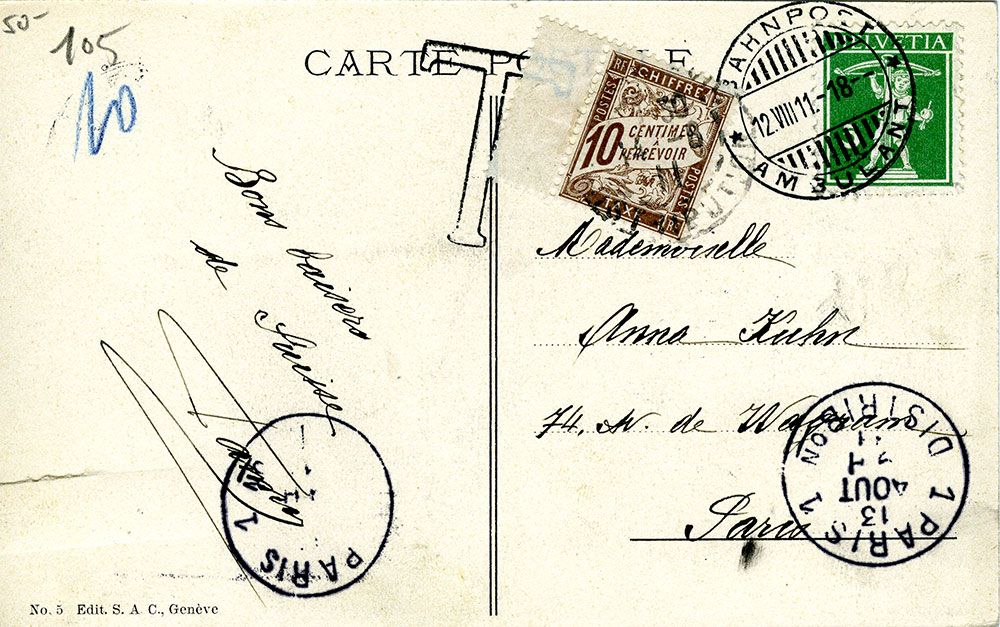 50-
105
10
CARTE PO
T
RF CHIFFRE
POSTES
10 CENTIMES
À
PERCEVOIR
POSTES
TAXE RF
HELVETIA
BAHNPOST
12.VIII.11.-18-
AMBULANT
Bons baisers
de Suisse
Mademoiselle
Anna Kuhn
74, Av. de Wagram
Paris
PARIS 1
1 PARIS 1
13
AOUT
11
NON DISTRIB
No. 5 Edit. S. A. C., Genève